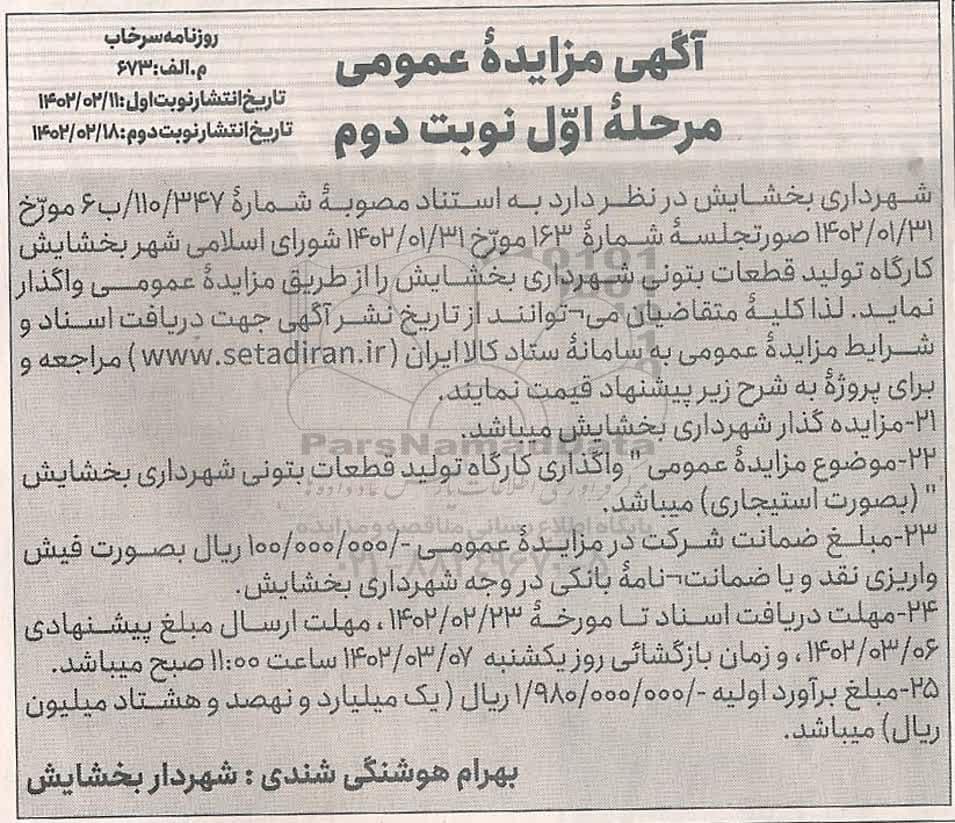 روزنامه سرخاب
م.الف: ۶۷۳
تاریخ انتشار نوبت اول: ۱۴۰۲/۰۲/۱۱
تاریخ انتشار نوبت دوم: ۱۴۰۲/۰۲/۱۸
آگهی مزایدهٔ عمومی
مرحلهٔ اوّل نوبت دوم
شهرداری بخشایش در نظر دارد به استناد مصوبهٔ شمارهٔ ۱۱۰/۳۴۷/ب۶ مورّخ
۱۴۰۲/۰۱/۳۱ صورتجلسهٔ شمارهٔ ۱۶۳ مورّخ ۱۴۰۲/۰۱/۳۱ شورای اسلامی شهر بخشایش
کارگاه تولید قطعات بتونی شهرداری بخشایش را از طریق مزایدهٔ عمومی واگذار
نماید. لذا کلیهٔ متقاضیان می¬توانند از تاریخ نشر آگهی جهت دریافت اسناد و
شرایط مزایدهٔ عمومی به سامانهٔ ستاد کالا ایران (www.setadiran.ir) مراجعه و
برای پروژهٔ به شرح زیر پیشنهاد قیمت نمایند.
۲۱-مزایده گذار شهرداری بخشایش میباشد.
۲۲-موضوع مزایدهٔ عمومی " واگذاری کارگاه تولید قطعات بتونی شهرداری بخشایش
" (بصورت استیجاری) میباشد.
۲۳-مبلغ ضمانت شرکت در مزایدهٔ عمومی -/۱۰۰/۰۰۰/۰۰۰ ریال بصورت فیش
واریزی نقد و یا ضمانت¬نامهٔ بانکی در وجه شهرداری بخشایش.
۲۴-مهلت دریافت اسناد تا مورخهٔ ۱۴۰۲/۰۲/۲۳ ، مهلت ارسال مبلغ پیشنهادی
۱۴۰۲/۰۳/۰۶ ، و زمان بازگشائی روز یکشنبه ۱۴۰۲/۰۳/۰۷ ساعت ۱۱:۰۰ صبح میباشد.
۲۵-مبلغ برآورد اولیه -/۱/۹۸۰/۰۰۰/۰۰۰ ریال ( یک میلیارد و نهصد و هشتاد میلیون
ریال) میباشد.
بهرام هوشنگی شندی : شهردار بخشایش
ParsNamadData
پایگاه اطلاع رسانی مناقصه و مزایده